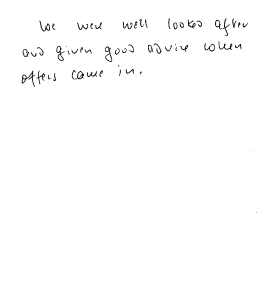 We were well looked after
and given good advice when
offers came in.